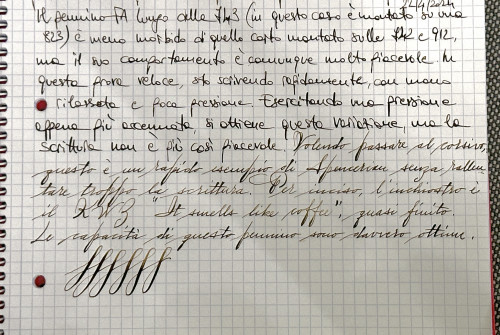 12/4/2024
Il pennino FA lungo alla 743 (in questo caso è montato su una
823) è meno morbido di quello corto montato sulle 742 e 912,
ma il suo comportamento è comunque molto piacevole. In
questa prova veloce, sto scrivendo rapidamente, con mano
rilassata e poca pressione. Esercitando una pressione
appena più accennata si ottiene questa variazione, ma la
scrittura non è più così piacevole. Volendo passare al corsivo,
questo è un rapido esempio di Spencerian senza rallen
tare troppo la scrittura. Per inciso, l'inchiostro è
il KWZ "It smells like coffee", quasi finito.
Le capacità di questo pennino sono davvero ottime.